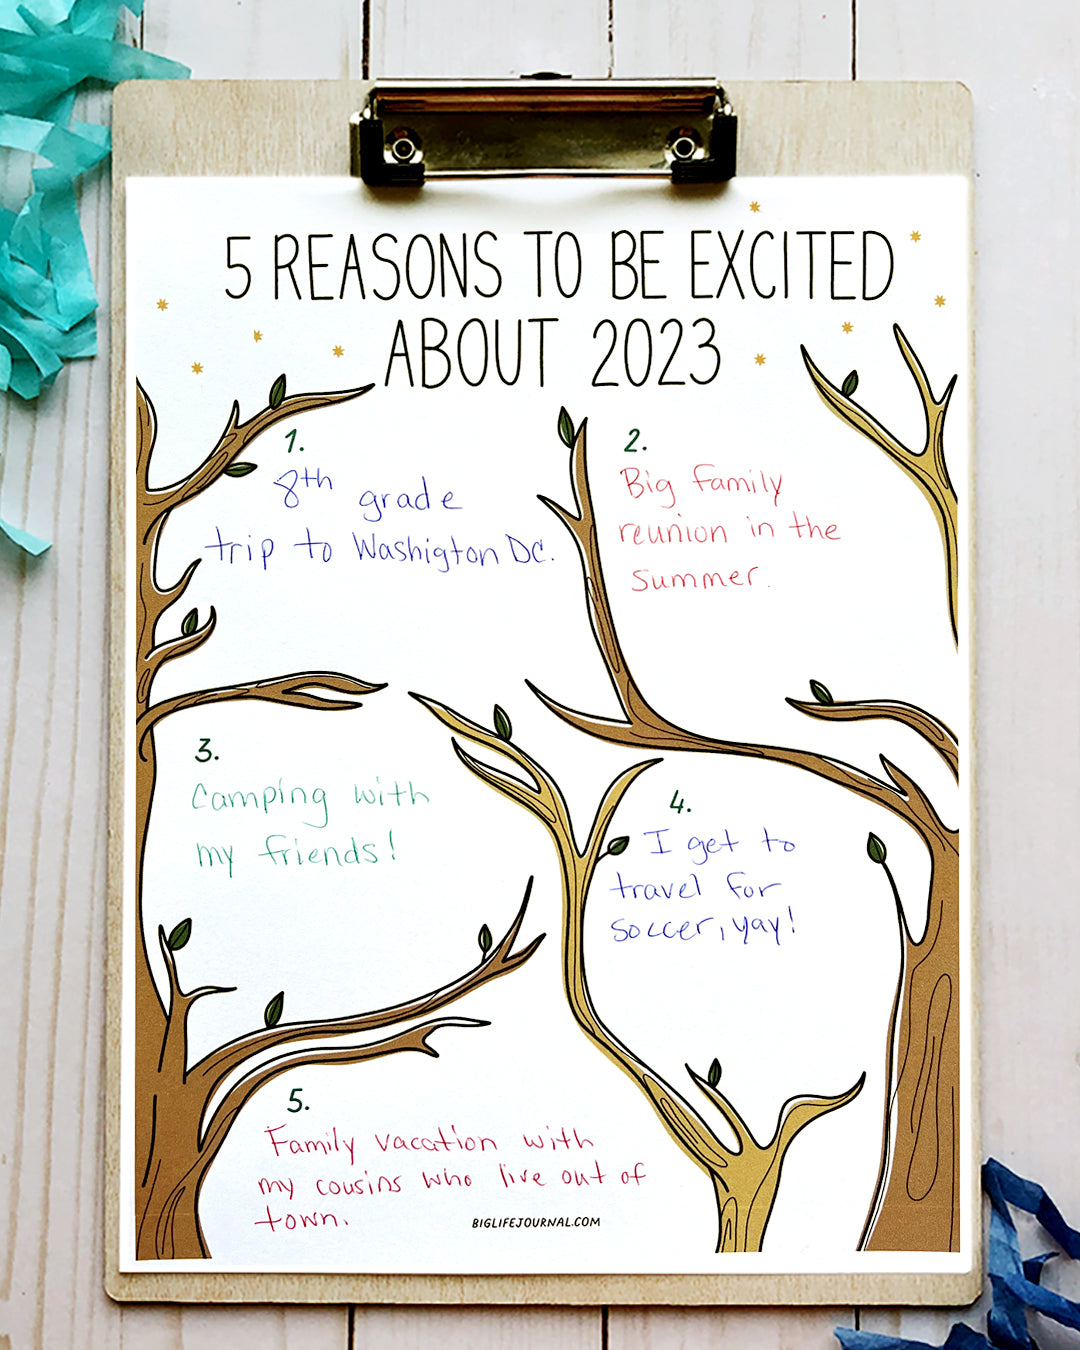 5 REASONS TO BE EXCITED
ABOUT 2023
1.
8th grade
trip to Washigton DC.
2.
Big family
reunion in the
summer.
3.
Camping with
my friends!
4.
I get to
travel for
soccer, yay!
5.
Family vacation with
my cousins who live out of
town.
BIGLIFEJOURNAL.COM